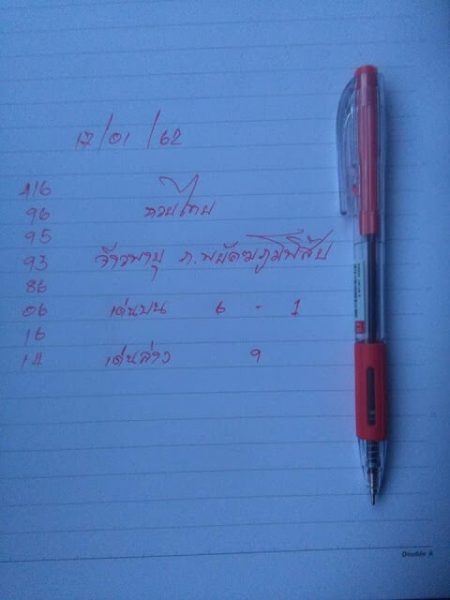 17/01/62
416
96 หวยไทย
95
93 จ้าวพายุ ภ.พยัคฆภูมิพิสัย
86
06 เด่นบน 6 - 1
16
14 เด่นล่าง 9
Double A